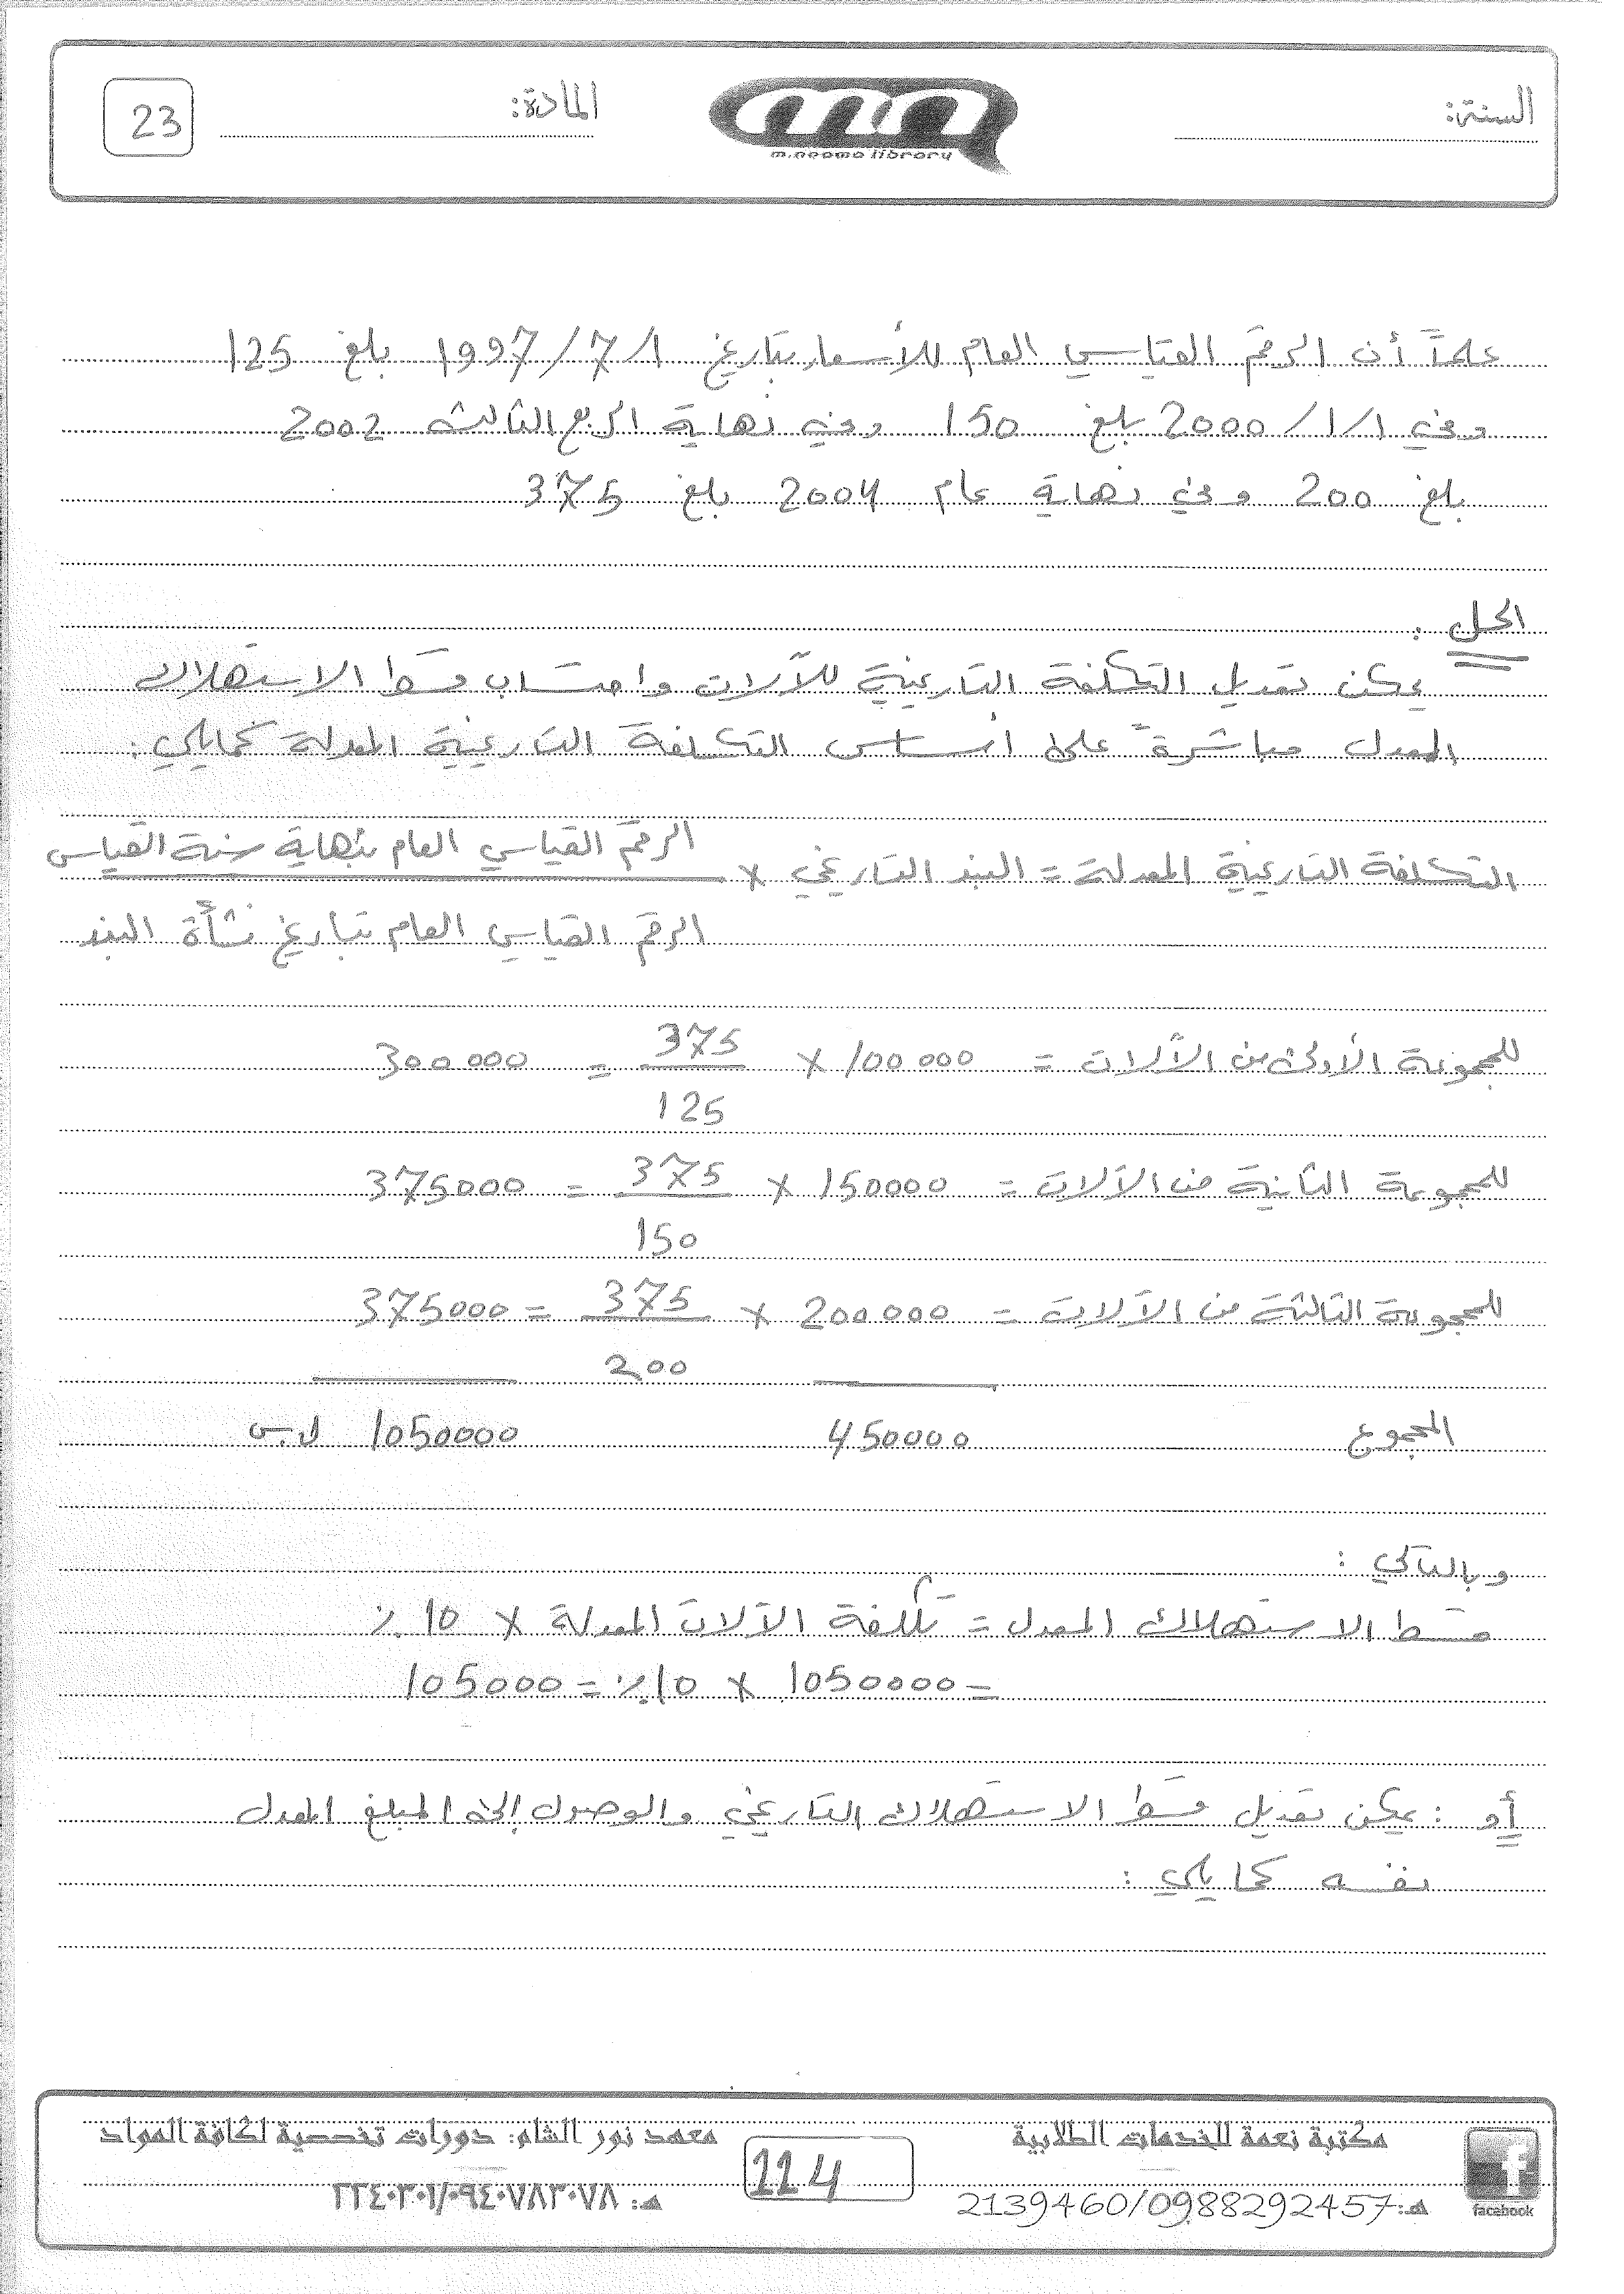 السنة:
m.neama library
المادة:
23
علماً أن الرقم القياسي العام للأسعار بتاريخ 1997/7/1 بلغ 125
وفي 2000/1/1 بلغ 150 وفي نهاية الربع الثالث 2002
بلغ 200 وفي نهاية عام 2004 بلغ 375
الحل:
يمكن تعديل التكلفة التاريخية للآلات واحتساب قسط الاستهلاك
المعدل مباشرةً على أساس التكلفة التاريخية المعدلة كمايلي:
الرقم القياسي العام بنهاية سنة القياس
التكلفة التاريخية المعدلة = البند التاريخي ×
الرقم القياسي العام بتاريخ نشأة البند
للمجموعة الأولى من الآلات = 100 000 × 375/125 = 300 000
للمجموعة الثانية من الآلات = 150000 × 375/150 = 375000
للمجموعة الثالثة من الآلات = 200 000 × 375/200 = 375000
المجموع 450000 1050000 ل.س
وبالتالي:
قسط الاستهلاك المعدل = تكلفة الآلات المعدلة × 10 %
= 1050000 × 10% = 105000
أو: يمكن تعديل قسط الاستهلاك التاريخي والوصول إلى المبلغ المعدل
نفسه كما يلي:
مكتبة نعمة للخدمات الطلابية
هـ:2139460/0988292457
facebook
114
معهد نور الشام: دورات تخصصية لكافة المواد
هـ: ٢٢٤٠٣٠١/٠٩٤٠٧٨٣٠٧٨